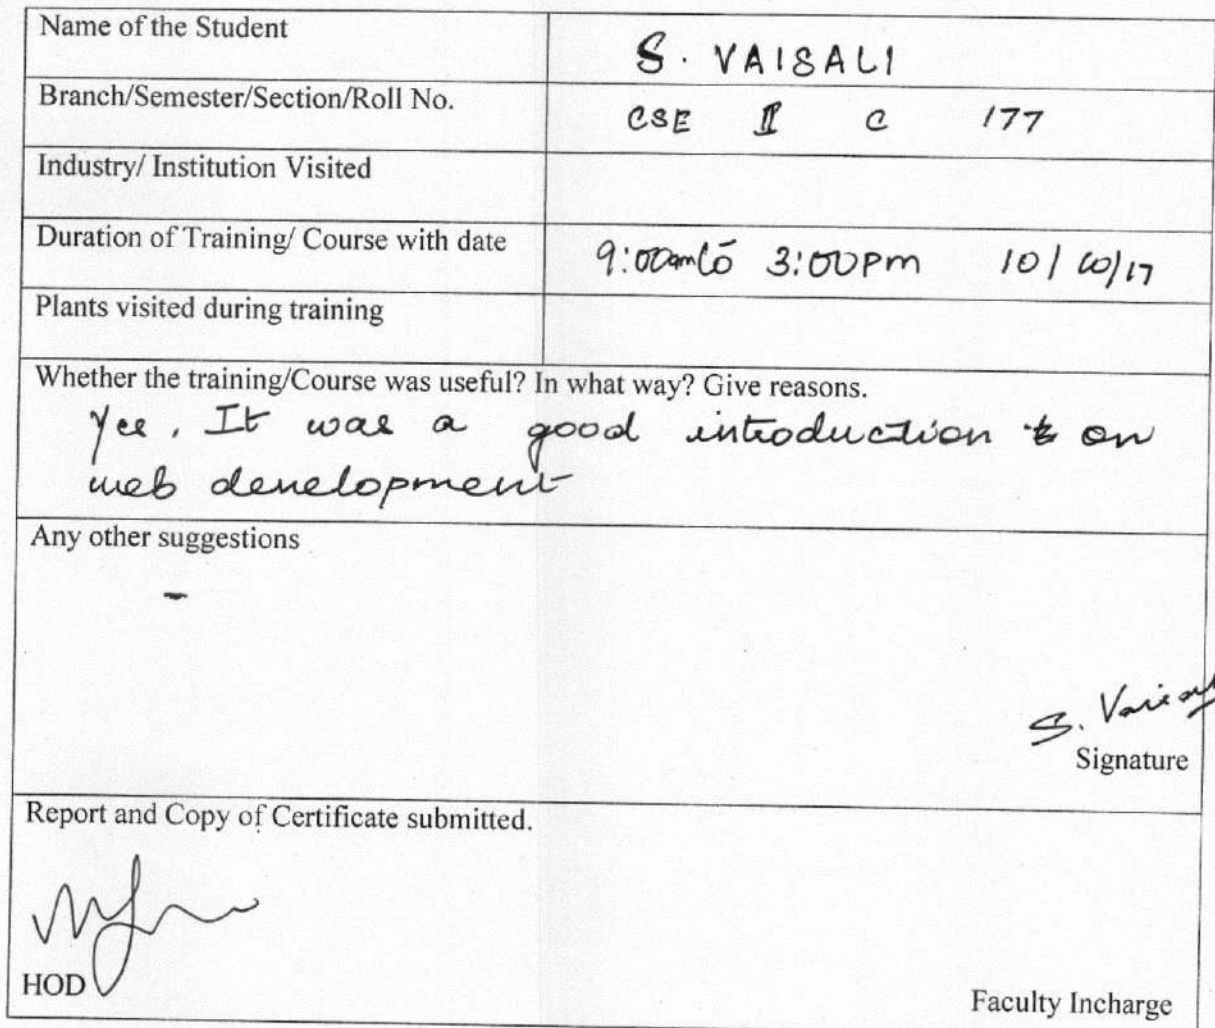 Name of the Student
S. VAISALI
Branch/Semester/Section/Roll No.
CSE II C 177
Industry/ Institution Visited
Duration of Training/ Course with date
9:00am to 3:00pm 10/10/17
Plants visited during training
Whether the training/Course was useful? In what way? Give reasons.
Yes, It was a good introduction on
web development
Any other suggestions
-
S. Vaisali
Signature
Report and Copy of Certificate submitted.
HOD
Faculty Incharge